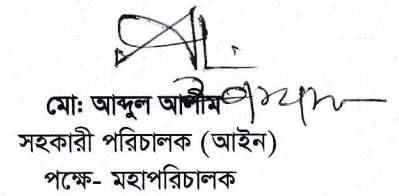 মো: আব্দুল আলীম
সহকারী পরিচালক (আইন)
পক্ষে- মহাপরিচালক